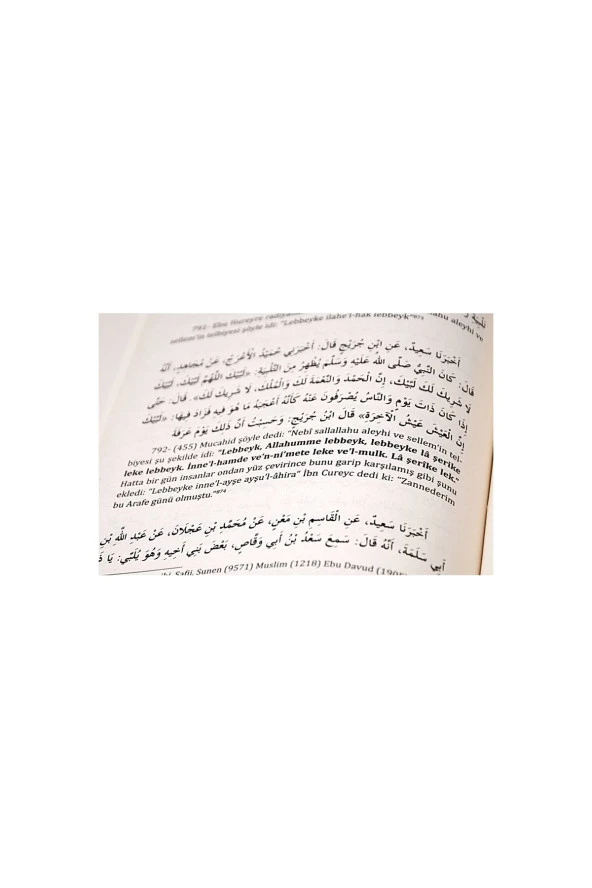 792- Ebu Hureyre radiyal
ahu aleyhi ve
sellem'in telbiyesi şöyle idi: "Lebbeyke ilahe'l-hak lebbeyk"⁸⁷³
أَخْبَرَنَا سَعِيدٌ، عَنِ ابْنِ جُرَيْجٍ قَالَ: أَخْبَرَنِي حُمَيْدٌ الْأَعْرَجُ، عَنْ مُجَاهِدٍ، أَنَّهُ
قَالَ: كَانَ النَّبِيُّ صَلَّى اللَّهُ عَلَيْهِ وَسَلَّمَ يُظْهِرُ مِنَ التَّلْبِيَةِ: «لَبَّيْكَ اللَّهُمَّ لَبَّيْكَ، لَبَّيْكَ
لَا شَرِيكَ لَكَ لَبَّيْكَ، إِنَّ الْحَمْدَ وَالنِّعْمَةَ لَكَ وَالْمُلْكَ، لَا شَرِيكَ لَكَ». قَالَ: حَتَّى
إِذَا كَانَ ذَاتَ يَوْمٍ وَالنَّاسُ يُصْرَفُونَ عَنْهُ كَأَنَّهُ أَعْجَبَهُ مَا هُوَ فِيهِ فَزَادَ فِيهَا: «لَبَّيْكَ
إِنَّ الْعَيْشَ عَيْشُ الْآخِرَةِ» قَالَ ابْنُ جُرَيْجٍ: وَحَسِبْتُ أَنَّ ذَلِكَ يَوْمَ عَرَفَةَ
792- (455) Mucahid şöyle dedi: "Nebî sallallahu aleyhi ve sellem'in tel-
biyesi şu şekilde idi: "Lebbeyk, Allahumme lebbeyk, lebbeyke lâ şerîke
leke lebbeyk. İnne'l-hamde ve'n-ni'mete leke ve'l-mulk. Lâ şerîke lek."
Hatta bir gün insanlar ondan yüz çevirince bunu garip karşılamış gibi şunu
ekledi: "Lebbeyke inne'l-ayşe ayşu'l-âhira" İbn Cureyc dedi ki: "Zannederim
bu Arafe günü olmuştu."⁸⁷⁴
أَخْبَرَنَا سَعِيدٌ، عَنِ الْقَاسِمِ بْنِ مَعْنٍ، عَنْ مُحَمَّدِ بْنِ عَجْلَانَ، عَنْ عَبْدِ اللَّهِ بْنِ
أَبِي سَلَمَةَ، أَنَّهُ قَالَ: سَمِعَ سَعْدُ بْنُ أَبِي وَقَّاصٍ، بَعْضَ بَنِي أَخِيهِ وَهُوَ يُلَبِّي: يَا ذَ
Şafii, Sunen (9571) Muslim (1218) Ebu Davud (1905